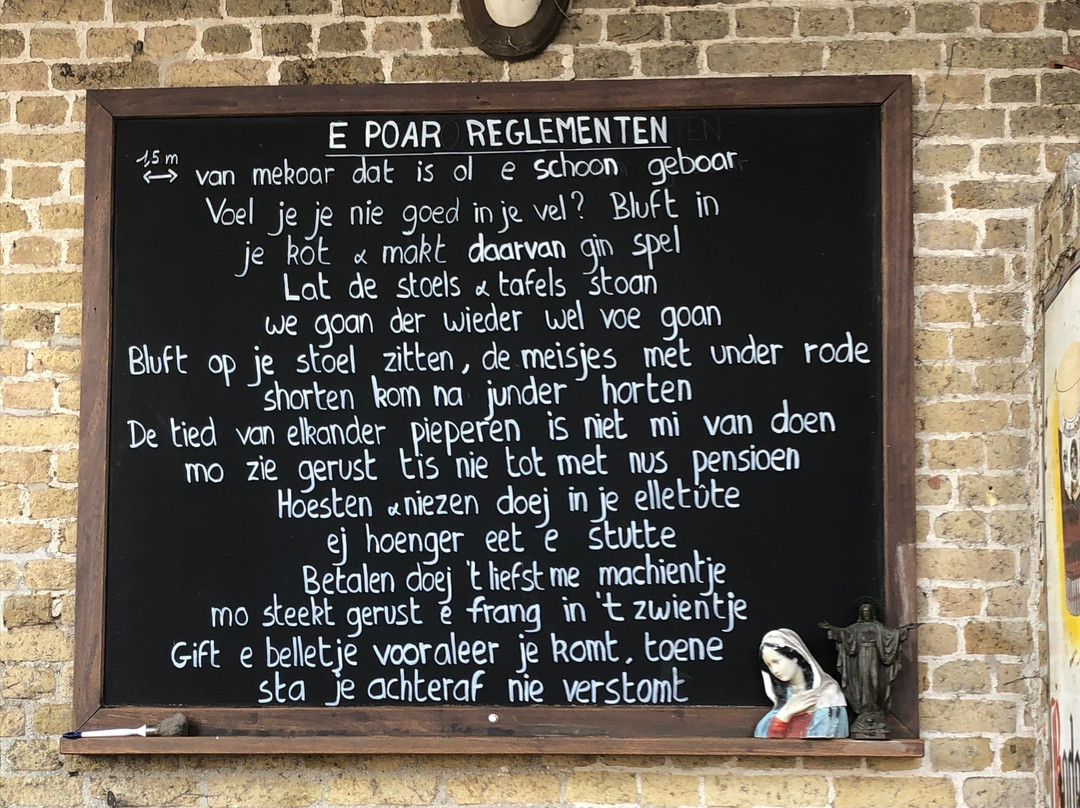 E POAR REGLEMENTEN
1,5 m
↔ van mekoar dat is ol e schoon geboar
Voel je je nie goed in je vel? Bluft in
je kot & makt daarvan gin spel
Lat de stoels & tafels stoan
we goan der wieder wel voe goan
Bluft op je stoel zitten, de meisjes met under rode
shorten kom na junder horten
De tied van elkander pieperen is niet mi van doen
mo zie gerust tis nie tot met nus pensioen
Hoesten & niezen doej in je elletûte
ej hoenger eet e stutte
Betalen doej 't liefst me machientje
mo steekt gerust e frang in 't zwientje
Gift e belletje vooraleer je komt, toene
sta je achteraf nie verstomt